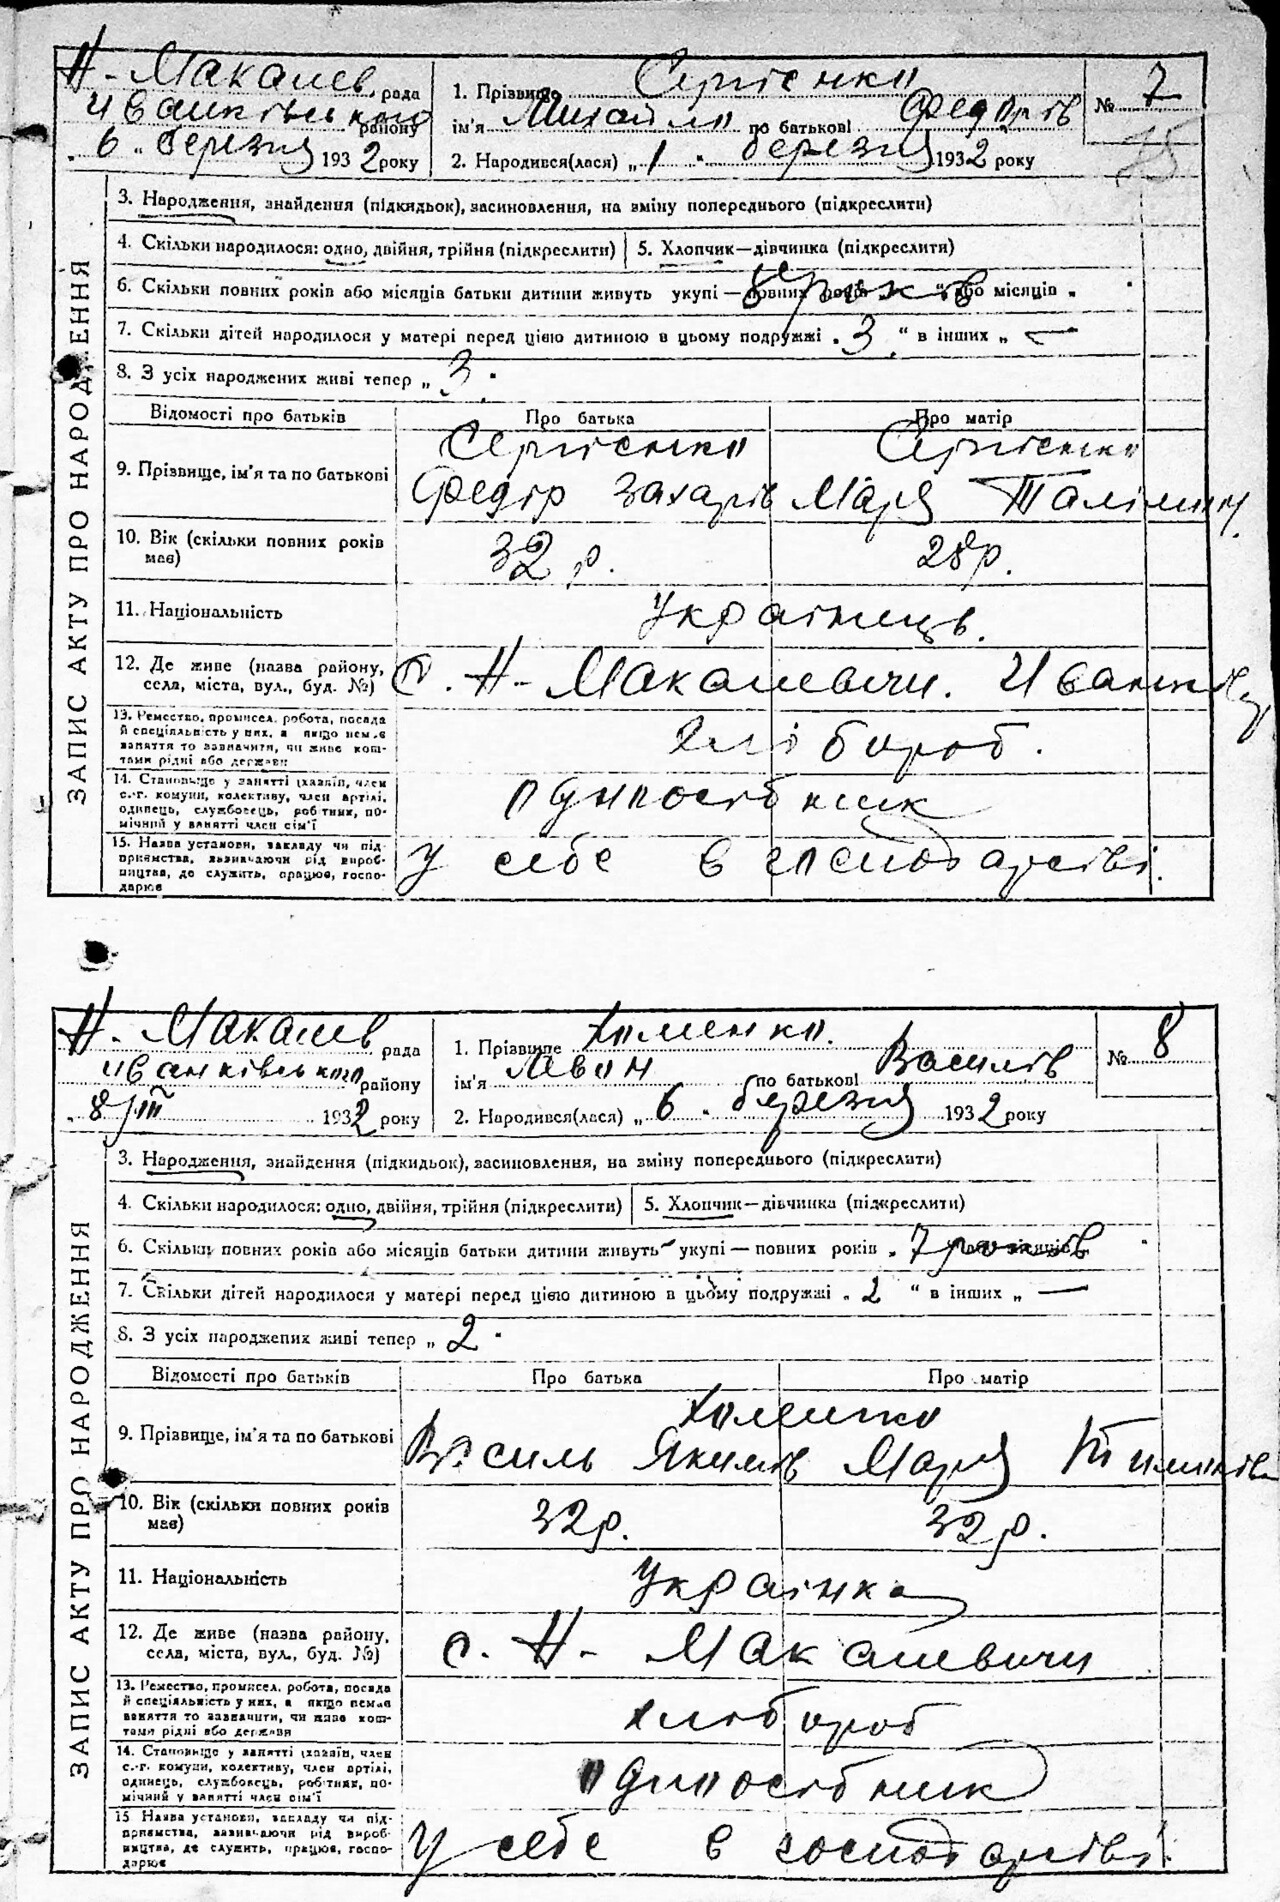 Н-Макалев. рада
Иванківського району
"6" березня 1932 року
1. Прізвище Сергієнко
ім'я Михайло по батькові Федорів
2. Народився(лася) „1" березня 1932 року
№ 7
75
ЗАПИС АКТУ ПРО НАРОДЖЕННЯ
3. Народження, знайдення (підкидьок), засиновлення, на зміну попереднього (підкреслити)
4. Скільки народилося: одно, двійня, трійня (підкреслити)
5. Хлопчик—дівчинка (підкреслити)
6. Скільки повних років або місяців батьки дитини живуть укупі — повних років 8 років " або місяців „
7. Скільки дітей народилося у матері перед цією дитиною в цьому подружжі „3" в інших „ —
8. З усіх народжених живі тепер „3"
Відомості про батьків Про батька Про матір
9. Прізвище, ім'я та по батькові
Сергієнко Сергієнко
Федір Захарів Марія
10. Вік (скільки повних років має)
32 р. 28 р.
11. Національність
Українець.
12. Де живе (назва району, села, міста, вул., буд. №)
с. Н-Макалевичи. Иванків
13. Ремество, промисел, робота, посада й спеціяльність у них, а якщо немає заняття то зазначити, чи живе коштами рідні або держави
Хлібороб.
14. Становище у занятті (хазяїн, член с.-г. комуни, колективу, член артілі, одинець, службовець, робітник, помічний у занятті член сім'ї
одноосібник
15. Назва установи, закладу чи підприємства, зазначаючи рід виробництва, де служить, працює, господарює
у себе в господарстві.
Н. Макалев рада
Иванківського району
"8/III 1932 року
1. Прізвище Хоменко.
ім'я Іван по батькові Василів
2. Народився(лася) „6" березня 1932 року
№ 8
ЗАПИС АКТУ ПРО НАРОДЖЕННЯ
3. Народження, знайдення (підкидьок), засиновлення, на зміну попереднього (підкреслити)
4. Скільки народилося: одно, двійня, трійня (підкреслити)
5. Хлопчик—дівчинка (підкреслити)
6. Скільки повних років або місяців батьки дитини живуть укупі — повних років „7 років
7. Скільки дітей народилося у матері перед цією дитиною в цьому подружжі „2" в інших „ —
8. З усіх народжених живі тепер „2"
Відомості про батьків Про батька Про матір
9. Прізвище, ім'я та по батькові
Хоменко
Василь Якимів Марія
10. Вік (скільки повних років має)
32 р. 32 р.
11. Національність
Українка
12. Де живе (назва району, села, міста, вул., буд. №)
с. Н- Макалевичи
13. Ремество, промисел, робота, посада й спеціяльність у них, а якщо немає заняття то зазначити, чи живе коштами рідні або держави
хлібороб
14. Становище у занятті (хазяїн, член с.-г. комуни, колективу, член артілі, одинець, службовець, робітник, помічний у занятті член сім'ї
одноосібник
15 Назва установи, закладу чи підприємства, зазначаючи рід виробництва, де служить, працює, господарює
у себе в господарстві.